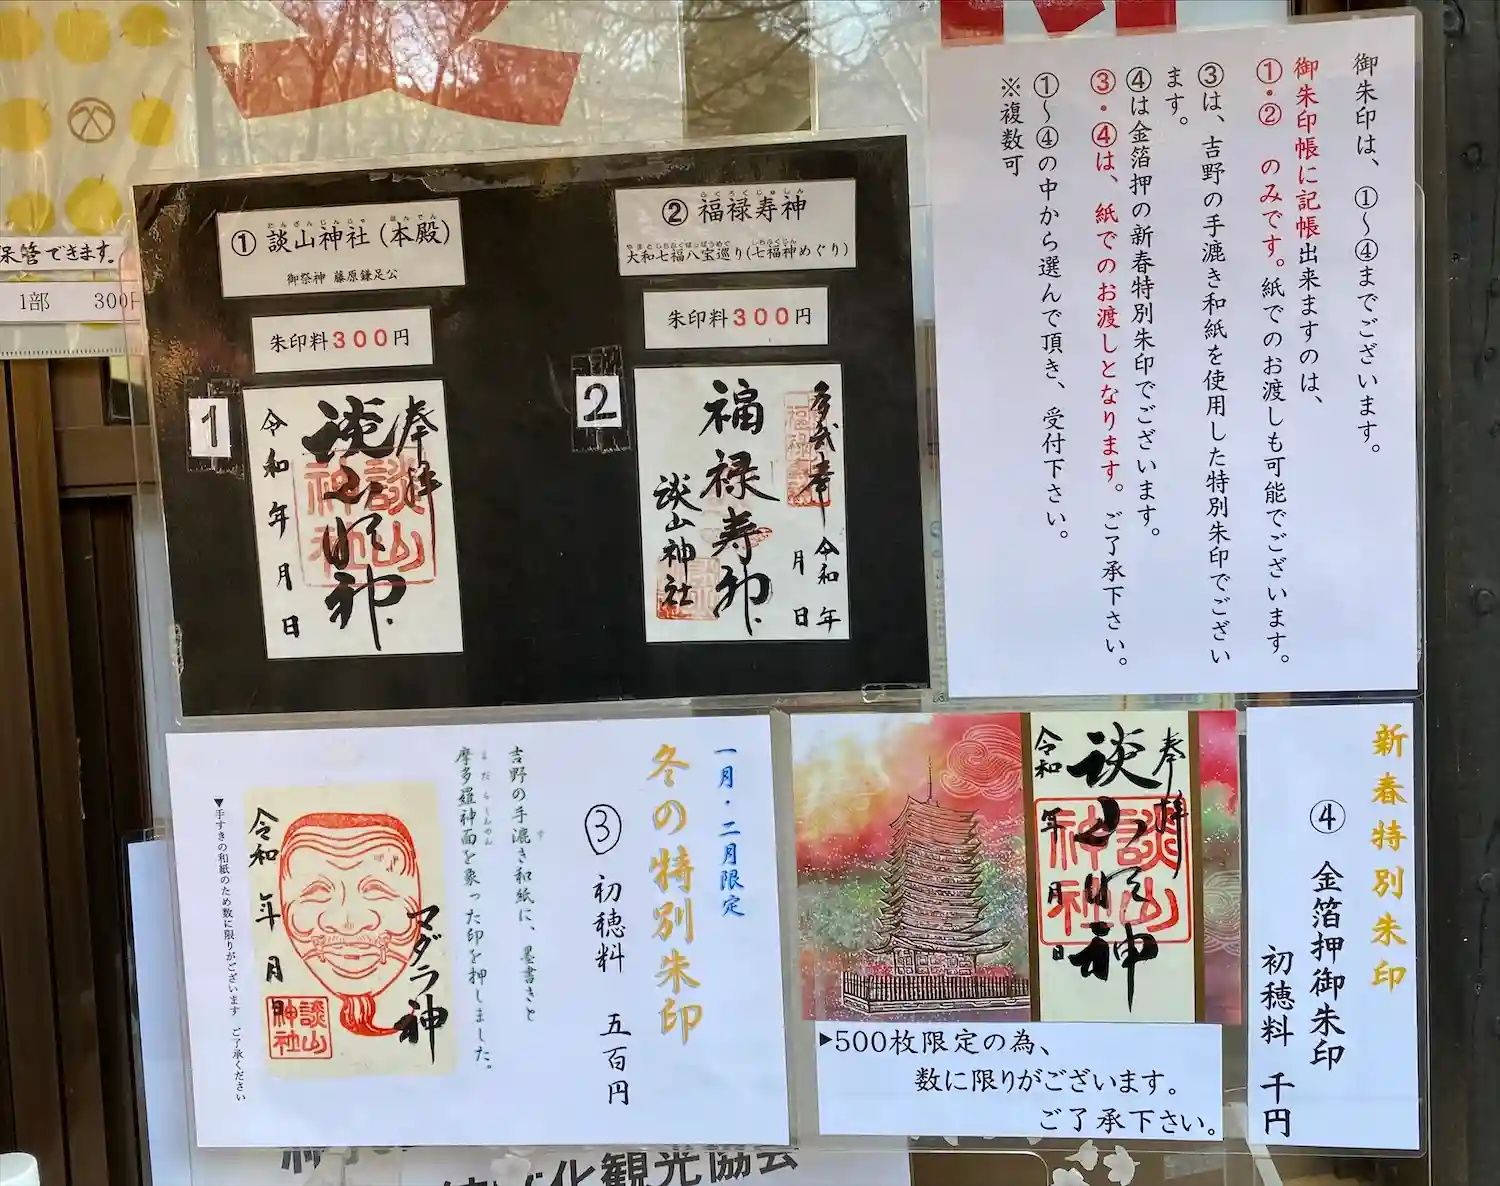 御朱印は、①～④までございます。
御朱印帳に記帳出来ますのは、
①・② のみです。紙でのお渡しも可能でございます。
③は、吉野の手漉き和紙を使用した特別朱印でござい
ます。
④は金箔押の新春特別朱印でございます。
③・④は、紙でのお渡しとなります。ご了承下さい。
①～④の中から選んで頂き、受付下さい。
※複数可
保管できます。
1部 300円
たんざんじんじゃ ほんでん
① 談山神社(本殿)
御祭神 藤原鎌足公
朱印料300円
1
奉拝
談山明神
談山神社
令和 年 月 日
ふくろくじゅしん
② 福禄寿神
やまとしちふくはっぽうめぐ しちふくじん
大和七福八宝巡り(七福神めぐり)
朱印料300円
2
多武峯
福禄寿
令和 年
月 日
福禄寿神
談山神社
一月・二月限定
冬の特別朱印
③ 初穂料 五百円
す
吉野の手漉き和紙に、墨書きと
まだらしんめん
摩多羅神面を象った印を押しました。
マダラ神
令和 年 月 日
談山神社
▼手すきの和紙のため数に限りがございます ご了承ください
新春特別朱印
④ 金箔押御朱印
初穂料 千円
奉拝
談山明神
談山神社
令和 年 月 日
▶500枚限定の為、
数に限りがございます。
ご了承下さい。
化観光協会